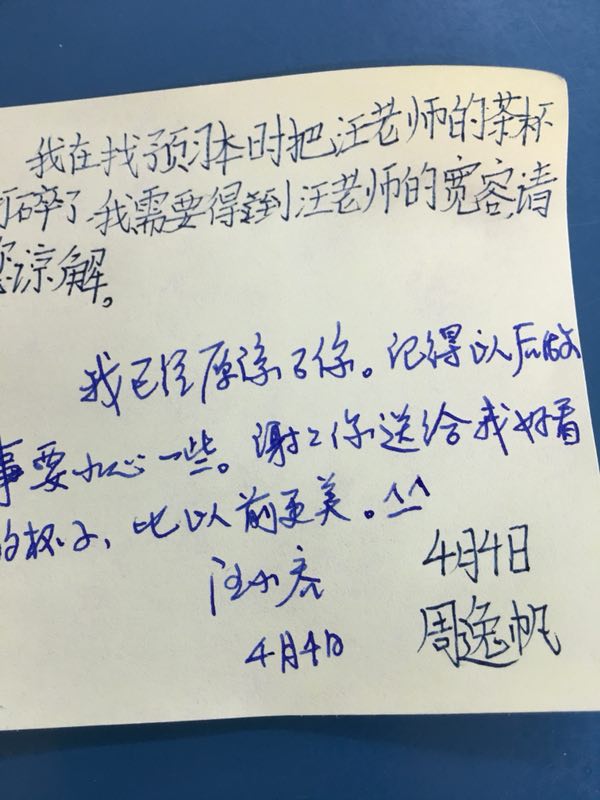 我在找预习本时把汪老师的茶杯
打碎了.我需要得到汪老师的宽容,请
您凉解。
我已经原谅了你。记得以后做
事要小心一些。谢谢你送给我好看
的杯子，比以前更美。^_^
汪小
4月4日
4月4日
周逸帆